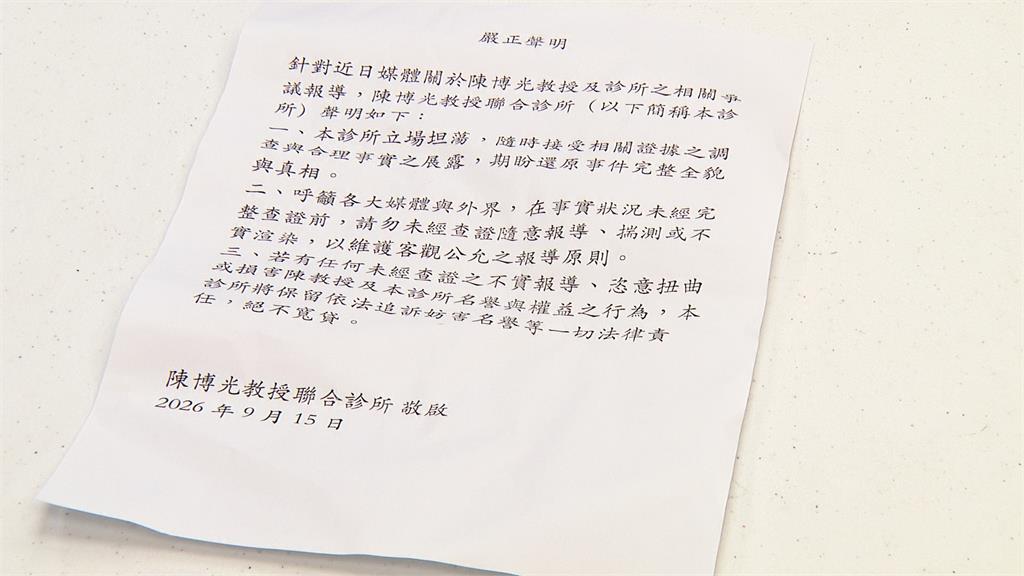 嚴正聲明
針對近日媒體關於陳博光教授及診所之相關爭
議報導，陳博光教授聯合診所（以下簡稱本診
所）聲明如下：
一、本診所立場坦蕩，隨時接受相關證據之調
查與合理事實之展露，期盼還原事件完整全貌
與真相。
二、呼籲各大媒體與外界，在事實狀況未經完
整查證前，請勿未經查證隨意報導、揣測或不
實渲染，以維護客觀公允之報導原則。
三、若有任何未經查證之不實報導、恣意扭曲
或損害陳教授及本診所名譽與權益之行為，本
診所將保留依法追訴妨害名譽等一切法律責
任，絕不寬貸。
陳博光教授聯合診所 敬啟
2026 年 9 月 15 日